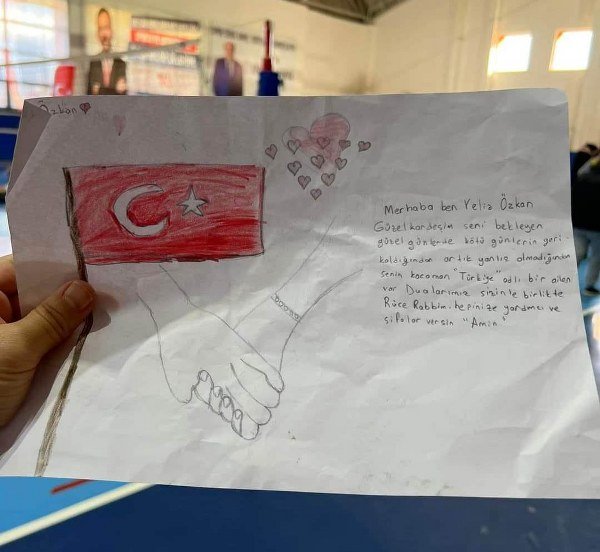 Özkan
Merhaba ben Yeliz Özkan
Güzel kardeşim seni bekleyen
güzel günlerde kötü günlerin geri
kaldığından artık yanlız olmadığından
senin kocaman "Türkiye" adlı bir ailen
var Dualarımız sizinle birlikte
Rüce Rabbim hepinize yardımcı ve
şifalar versin "Amin"